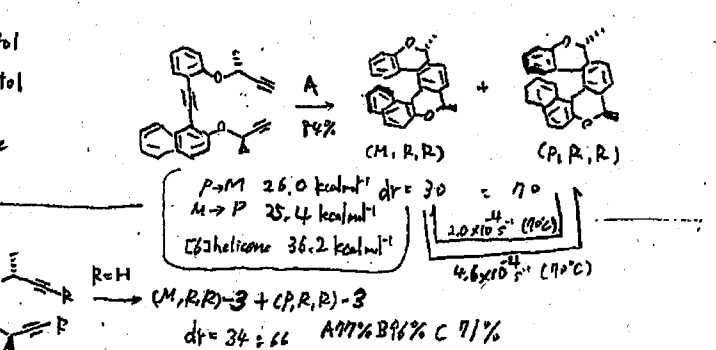 A
84%
(M, R, R)
+
(P, R, R)
P→M 26.0 kcalmol⁻¹
M→P 25.4 kcalmol⁻¹
[6]helicene 36.2 kcalmol⁻¹
dr = 30 : 70
2.0×10⁻⁴ s⁻¹ (70℃)
4.6×10⁻⁴ s⁻¹ (70℃)
R=H
(M,R,R)-3 + (P,R,R)-3
dr = 34 : 66 A77% B96% C 71%